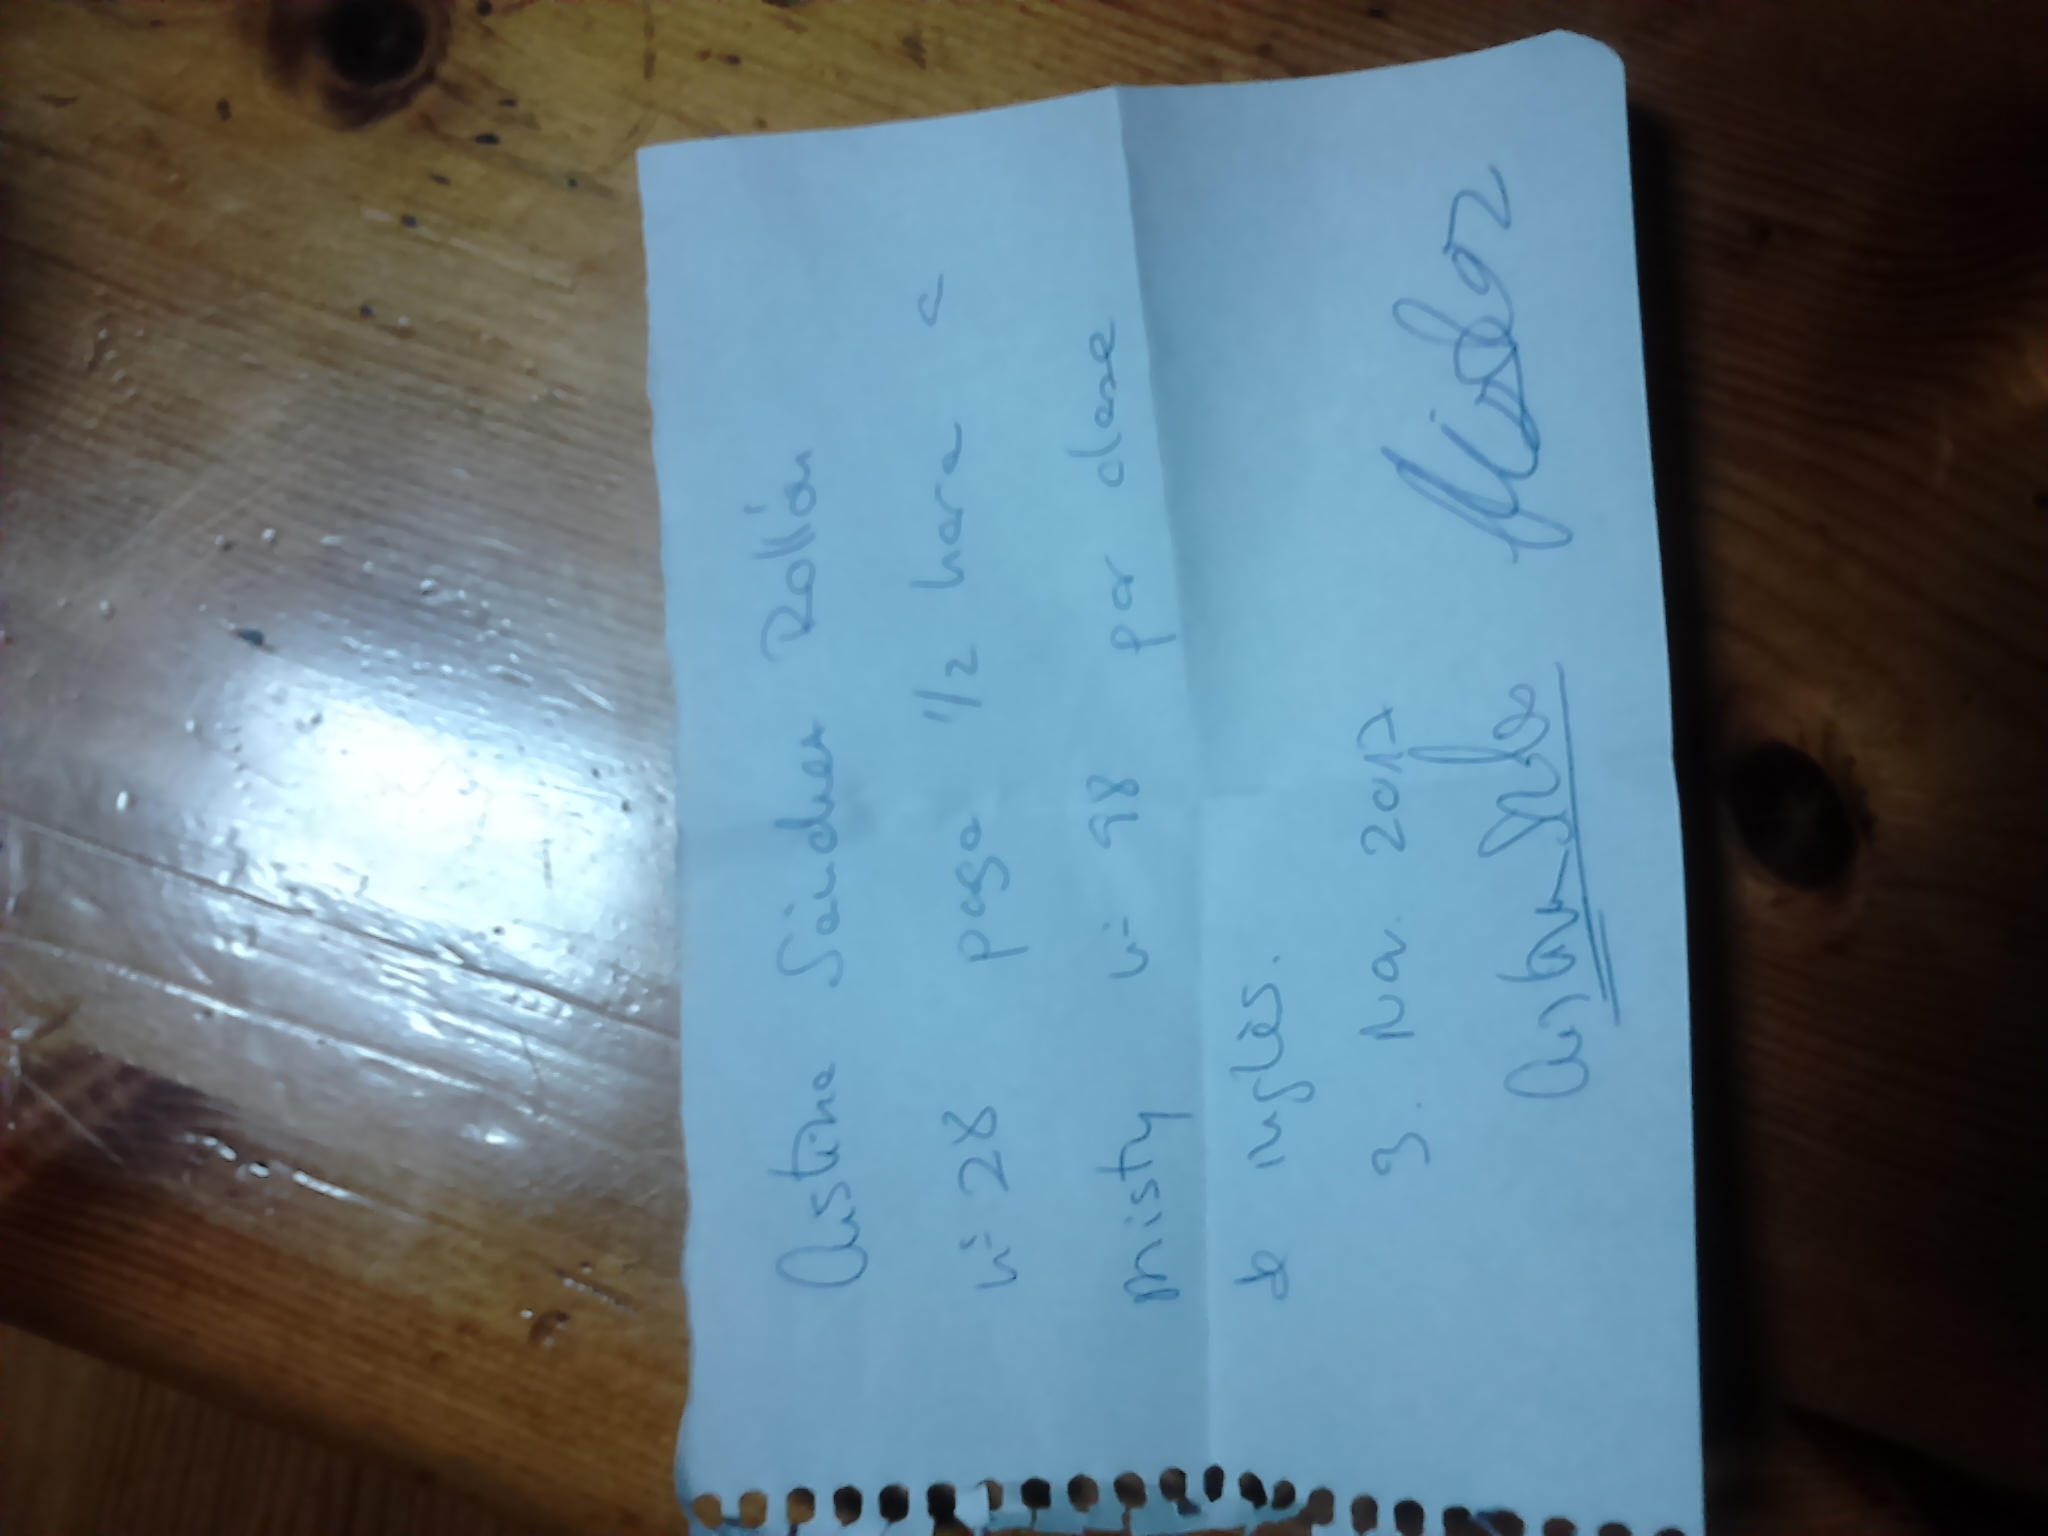 Cristina Sánchez Rollón
nº 28 paga 1/2 hora a
Misty nº 98 por clase
de inglés.
3. Nov. 2017
Cristina